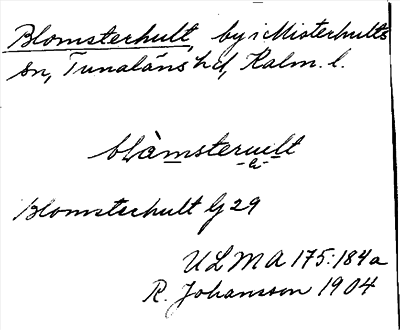 Blomsterhult, by i Misterhults
sn, Tunaläns hd, Kalm. l.
Blomsterhult G 29
ULMA 175:184a
R. Johansson 1904